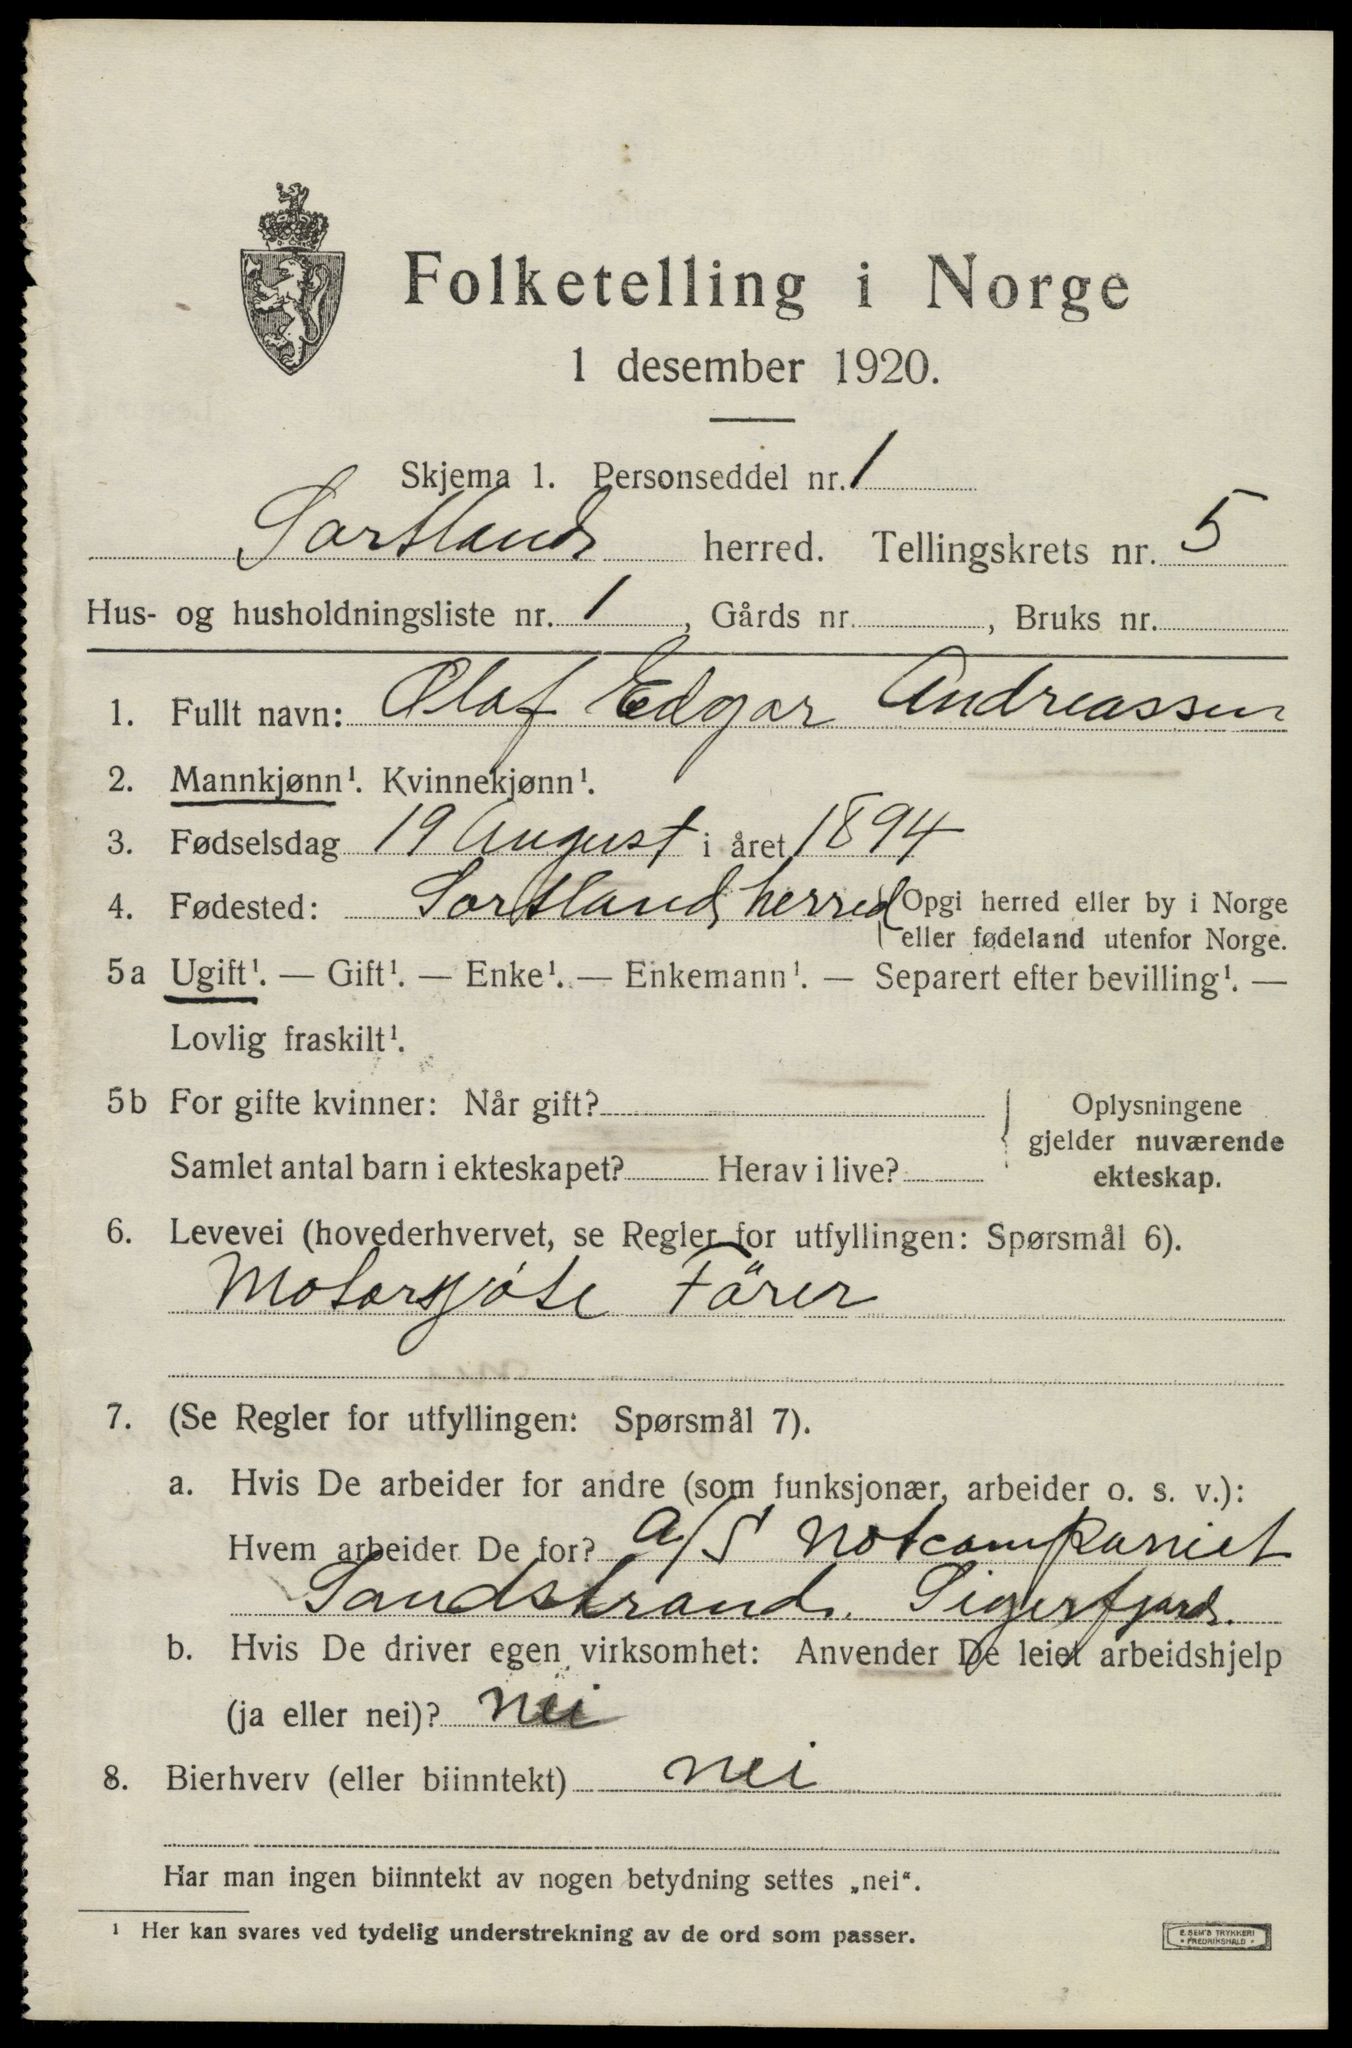 Folketelling i Norge
1 desember 1920.
Skjema 1. Personseddel nr. 1
Sortland herred. Tellingskrets nr. 5
Hus- og husholdningsliste nr. 1, Gårds nr. , Bruks nr.
1. Fullt navn: Olaf Edgar Andreassen
2. Mannkjønn¹. Kvinnekjønn¹.
3. Fødselsdag 19 August i året 1894
4. Fødested: Sortland herred { Opgi herred eller by i Norge
eller fødeland utenfor Norge.
5a Ugift¹. — Gift¹. — Enke¹. — Enkemann¹. — Separert efter bevilling¹. —
Lovlig fraskilt¹.
5b For gifte kvinner: Når gift? Oplysningene
gjelder nuværende
Samlet antal barn i ekteskapet? Herav i live? ekteskap.
6. Levevei (hovederhvervet, se Regler for utfyllingen: Spørsmål 6).
Motorsjöte Förer
7. (Se Regler for utfyllingen: Spørsmål 7).
a. Hvis De arbeider for andre (som funksjonær, arbeider o. s. v.):
Hvem arbeider De for? a/S Notcompaniet
Sandstrand. Sigerfjord.
b. Hvis De driver egen virksomhet: Anvender De leiet arbeidshjelp
(ja eller nei)? nei
8. Bierhverv (eller biinntekt) nei
Har man ingen biinntekt av nogen betydning settes „nei“.
¹ Her kan svares ved tydelig understrekning av de ord som passer.
E. SEM'S TRYKKERI
• FREDRIKSHALD •